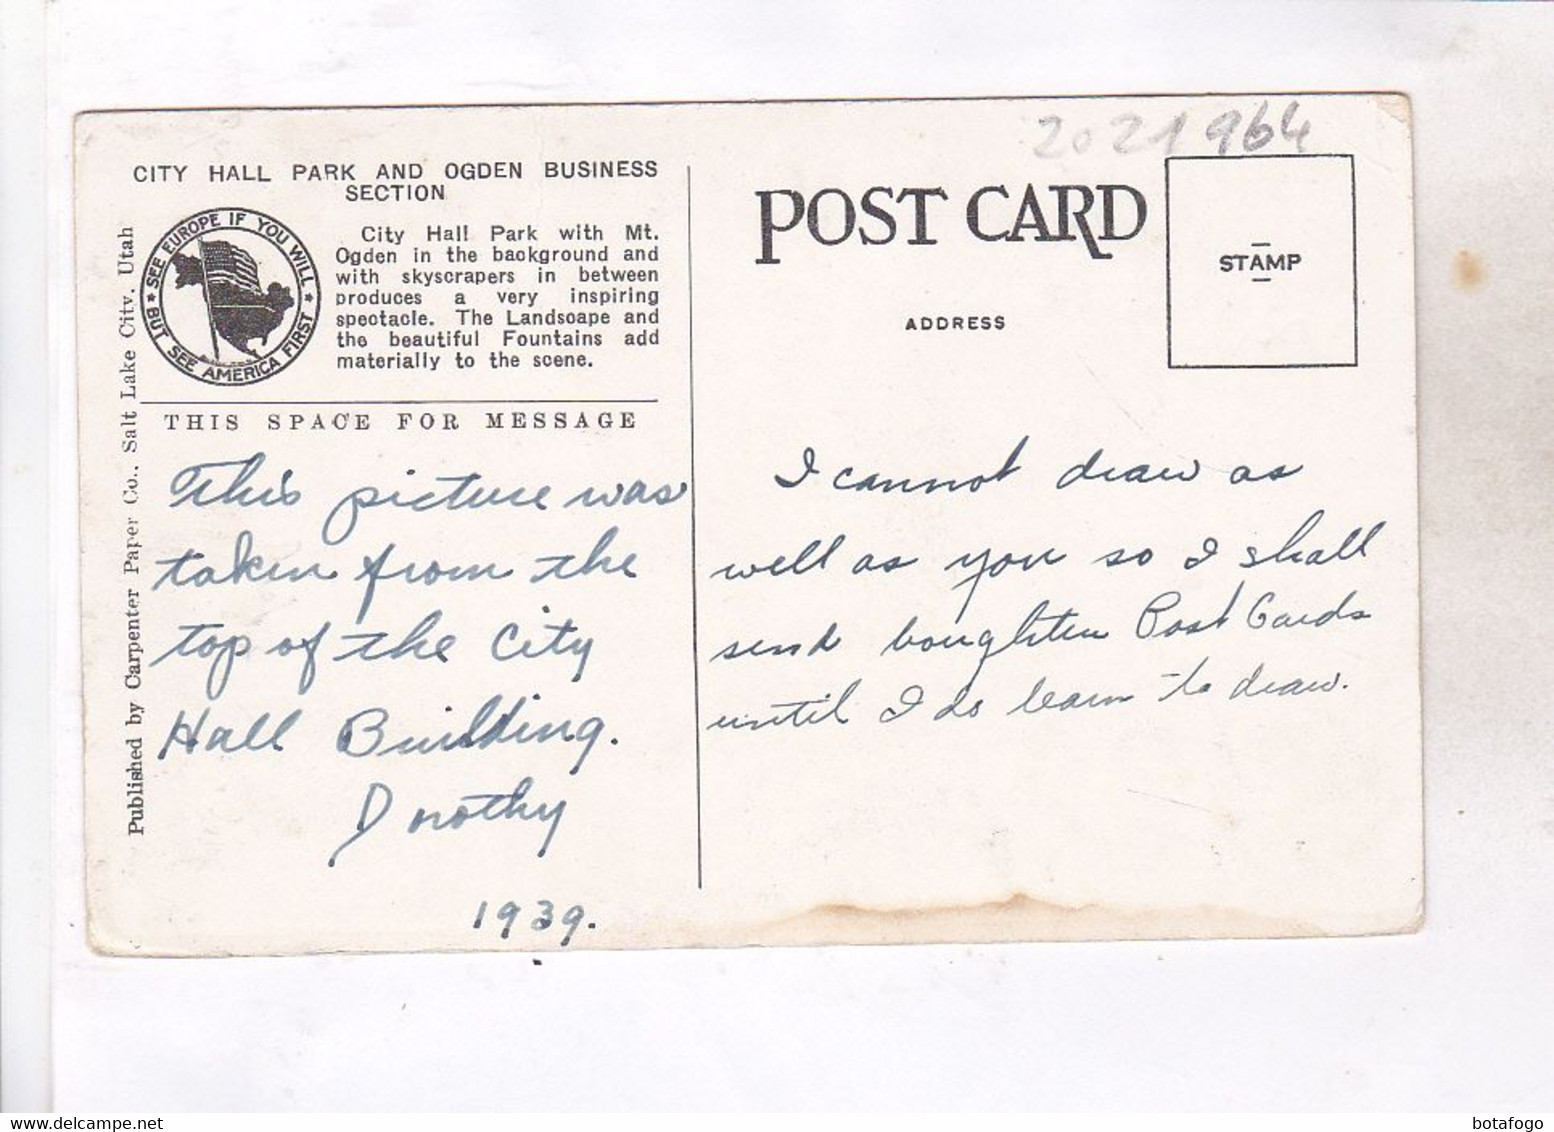 2021964
CITY HALL PARK AND OGDEN BUSINESS
SECTION
SEE EUROPE IF YOU WILL
BUT SEE AMERICA FIRST
City Hall Park with Mt.
Ogden in the background and
with skyscrapers in between
produces a very inspiring
spectacle. The Landscape and
the beautiful Fountains add
materially to the scene.
Published by Carpenter Paper Co., Salt Lake City, Utah
THIS SPACE FOR MESSAGE
This picture was
taken from the
top of the City
Hall Building.
Dorothy
1939.
POST CARD
ADDRESS
STAMP
I cannot draw as
well as you so I shall
send boughten Post Cards
until I do learn to draw.
botafogo